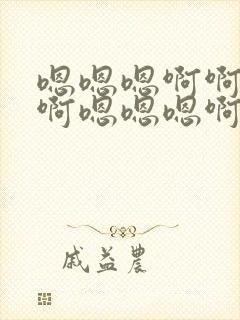 嗯嗯嗯啊啊
啊嗯嗯嗯啊
戚益农